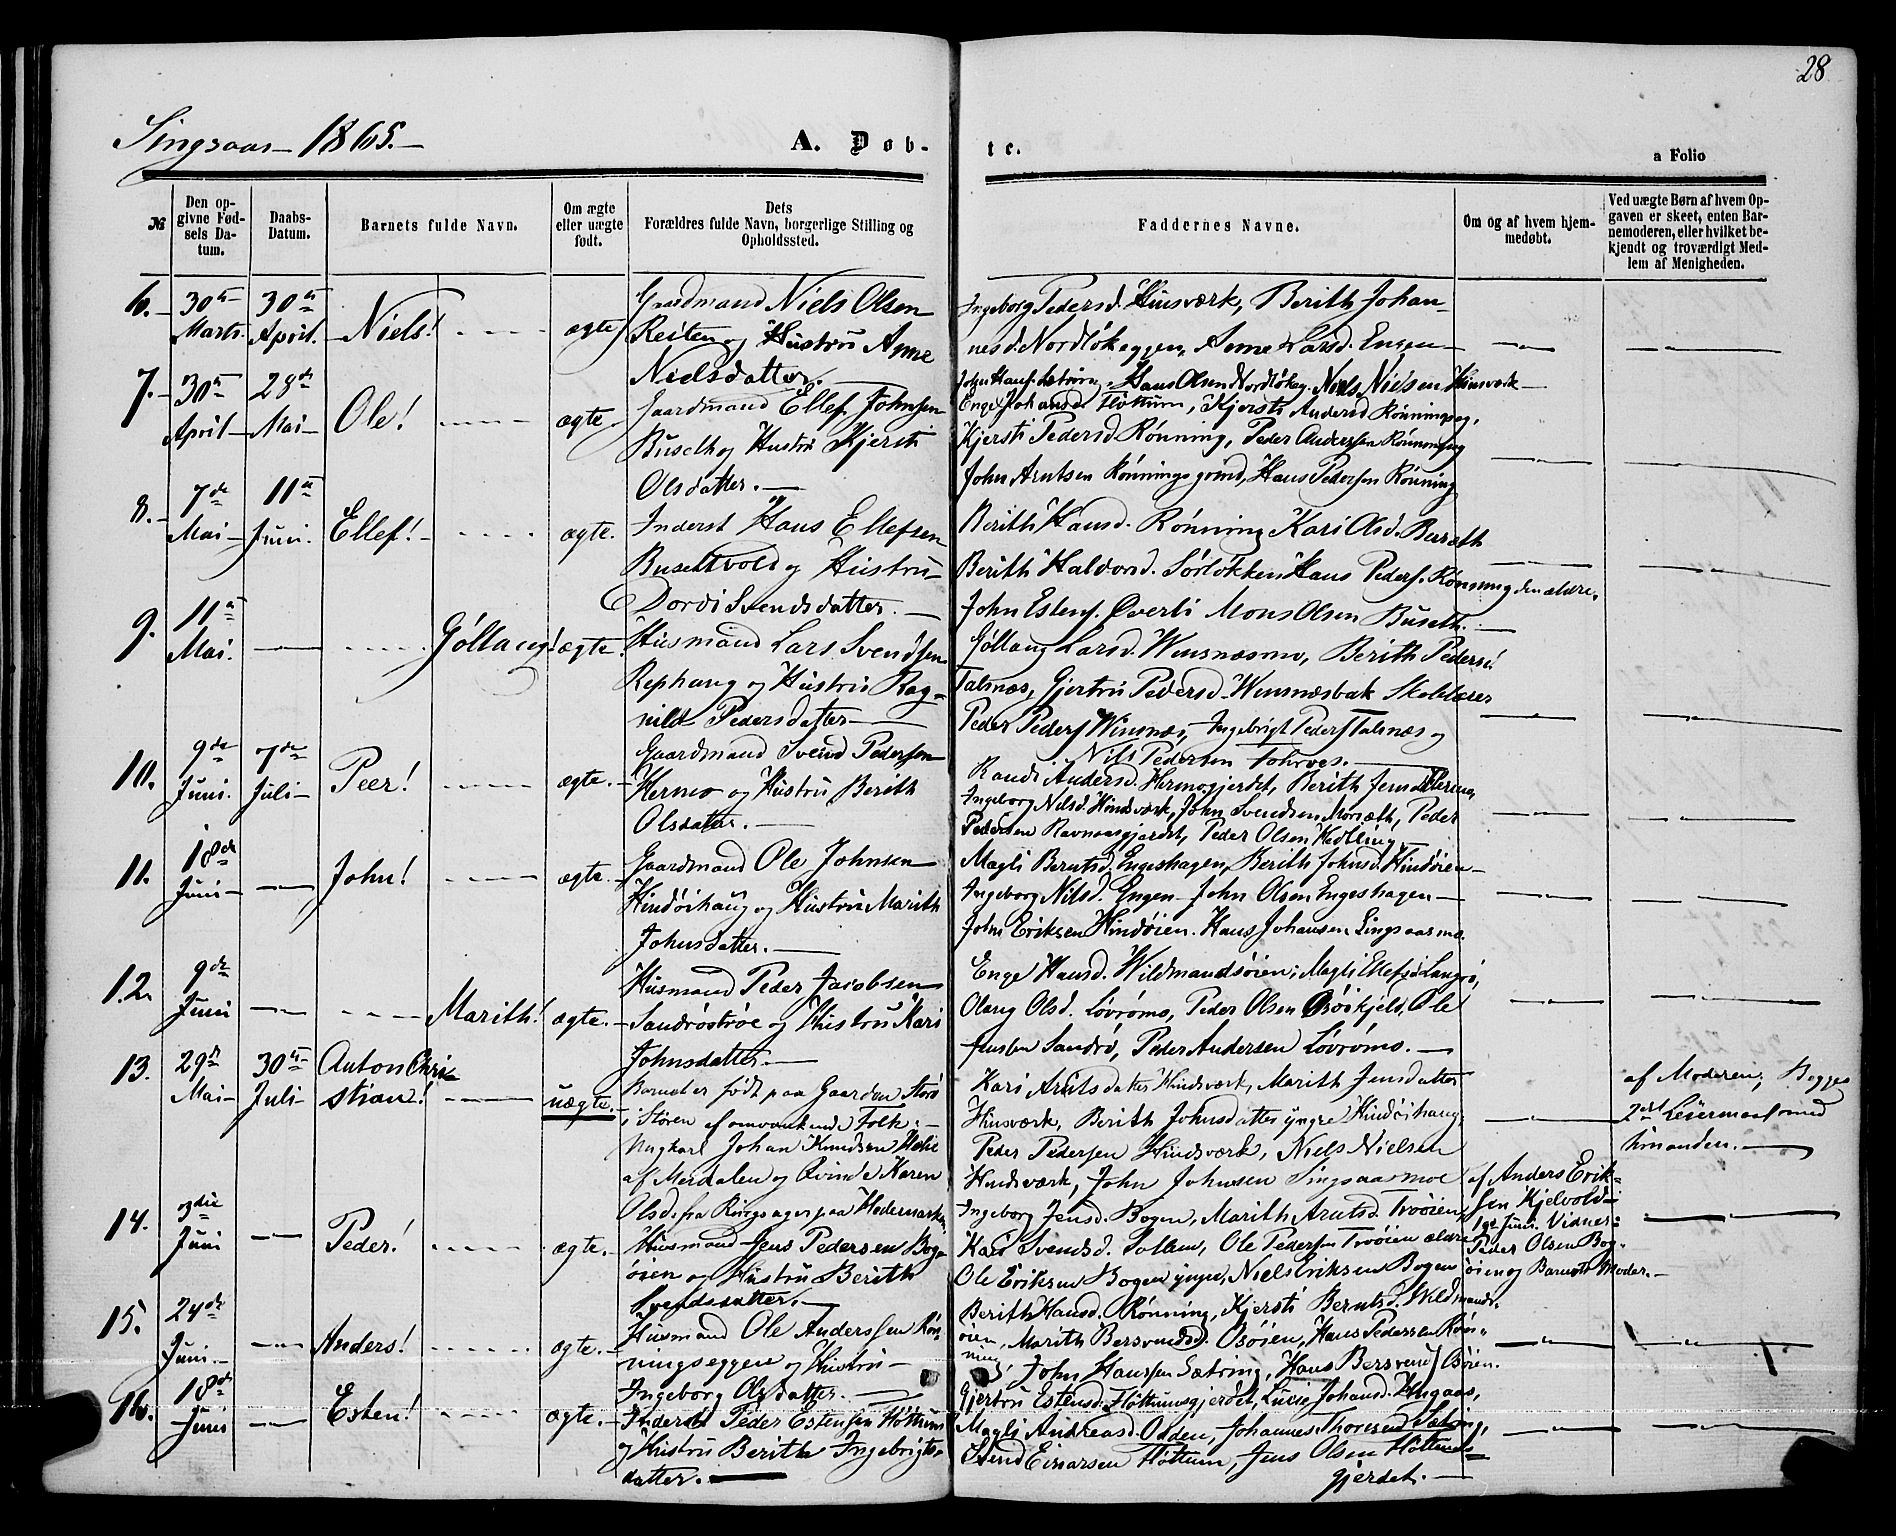 28
Singsaas 1865.
A. Døb-
te.
a Folio
№
Den op-
givne Fød-
sels Da-
tum.
Daabs-
Datum.
Barnets fulde Navn.
Om ægte
eller uægte
født.
Dets
Forældres fulde Navn, borgerlige Stilling og
Opholdssted.
Faddernes Navne.
Om og af hvem hjem-
medøbt.
Ved uægte Børn af hvem Op-
gaven er skeet, enten Bar-
nemoderen, eller hvilket be-
kjendt og troværdigt Med-
lem af Menigheden.
6.
30te
Marts
30te
April.
Niels!
ægte
Gaardmand Niels Olsen
Reiten og Hustru Anne
Nielsdatter.
Ingeborg Pedersd. Hinsværk, Berith Johan-
nesd. Nordløkeggen, Anne Larsd. Engen
Hans Olsen Nordløkeg. Niels Nielsen Hinsværk
7.
30te
April
28de
Mai
Ole!
ægte
Gaardmand Ellef Johnsen
Buseth og Hustru Kjersti
Olsdatter.
Enge Johansd. Fløttum, Kjersti Andersd. Rønningseg,
Kjersti Pedersd. Rønning, Peder Anderssen Rønningseg
John Arntsen Rønningsgrind, Hans Pedersen Rønning
8.
7de
Mai
11te
Juni.
Ellef!
ægte.
Inderst Hans Ellefsen
Busethvold og Hustru
Dordi Svendsdatter.
Berith Hansd. Rønning Kari Olsd. Buseth
Berith Haldorsd. Sørløkken Hans Peders. Rønning den ældre,
John Estens. Øverli Mons Olsen Buseth.
9.
11te
Mai.
Gølloug!
ægte.
Husmand Lars Svendsen
Rephaug og Hustru Rag-
nild Pedersdatter
Gølloug Larsd. Winsnesmo, Berith Pedersd.
Talsnes, Gjertru Pedersd. Winsnesbak Skolelærer
Peder Peders. Winsnes, Ingebrigt Peders. Talsnes og
Nils Pedersen
10.
9de
Juni.
7de
Juli
Peer!
ægte.
Gaardmand Svend Pedersen
Hermo og Hustru Berith
Olsdatter.
Randi Andersd. Hermogjerdet, Berith Jensd.
Ingeborg Nilsd. Hindsværk, John Svendsen Moriæth, Peder
Pedersen Ravnaasgjerdet, Peder Olsen
11.
18de
Juni
John!
ægte.
Gaardmand Ole Johnsen
Hindøihaug og Hustru Marith
Johnsdatter.
Magli Berntsd. Engeshagen, Berith Johnsd. Hindøien
Ingeborg Nilsd. Engen John Olsen Engeshagen
John Eriksen Hindøien. Hans Johansen Singsaasmo.
12.
9de
Juni
Marith!
ægte.
Husmand Peder Jacobsen
Sandrøstrøe og Hustru Kari
Johnsdatter.
Enge Hansd. Wildmandsøien, Magli Ellefsd. Langø,
Oloug Olsd. Løvrømo, Peder Olsen, Ole
Jensen Sandrø, Peder Andersen Løvrømo.
13.
29de
Mai
30te
Juli
Anton Chri-
stian!
uægte.
Barnet er født paa Gaarden Storø
i Støren af omvankende Folk:
Ungkarl Johan Knudsen
af Merdalen og Qvinde Karen
Olsd. fra Ringsager paa Hedemarken
Kari Arntsdatter Hindsværk, Marith Jensdatter
Hinsværk, Berith Johnsdatter yngre Hindøihaug,
Peder Pedersen Hindsværk, Niels Nielsen
Hindsværk, John Johnsen Singsaasmoe
af Moderen, Begges
2det Leiermaal med
hinanden.
14.
3die
Juni
Peder!
ægte.
Husmand Jens Pedersen Bog-
øien og Hustru Berith
Svendsdatter.
Ingeborg Jensd. Bogen, Marith Arntsd. Trøøien,
Kari Svendsd. Sollem, Ole Pedersen Trøøien ældre
Ole Eriksen Bogen yngre, Niels Eriksen Bogen
af Anders Erik-
sen Kjelvold
Juni. Vidner:
Peder Olsen Bog-
øien og Barnets Moder.
15.
24de
Juni.
Anders!
ægte.
Husmand Ole Anderssen Røn-
ningseggen og Hustru
Ingeborg Olsdatter.
Berith Hansd. Rønning, Kjersti Berntsd. Wildmands-
øien, Marith Bersvendsd. Bøien, Hans Pedersen Røn-
ning, John Hanssen Sætring, Hans Bersvends. Bøien.
16.
18de
Juni
Esten!
ægte.
Inderst Peder Estensen Fløttum
og Hustru Berith Ingebrigts-
datter.
Gjertru Estensd. Fløttumsgjerdet, Lucie Johansd.
Magli Andreasd. Odden, Johannes Thoresen Sætring,
Svend Einarsen Fløttum, Jens Olsen Fløttums-
gjerdet.